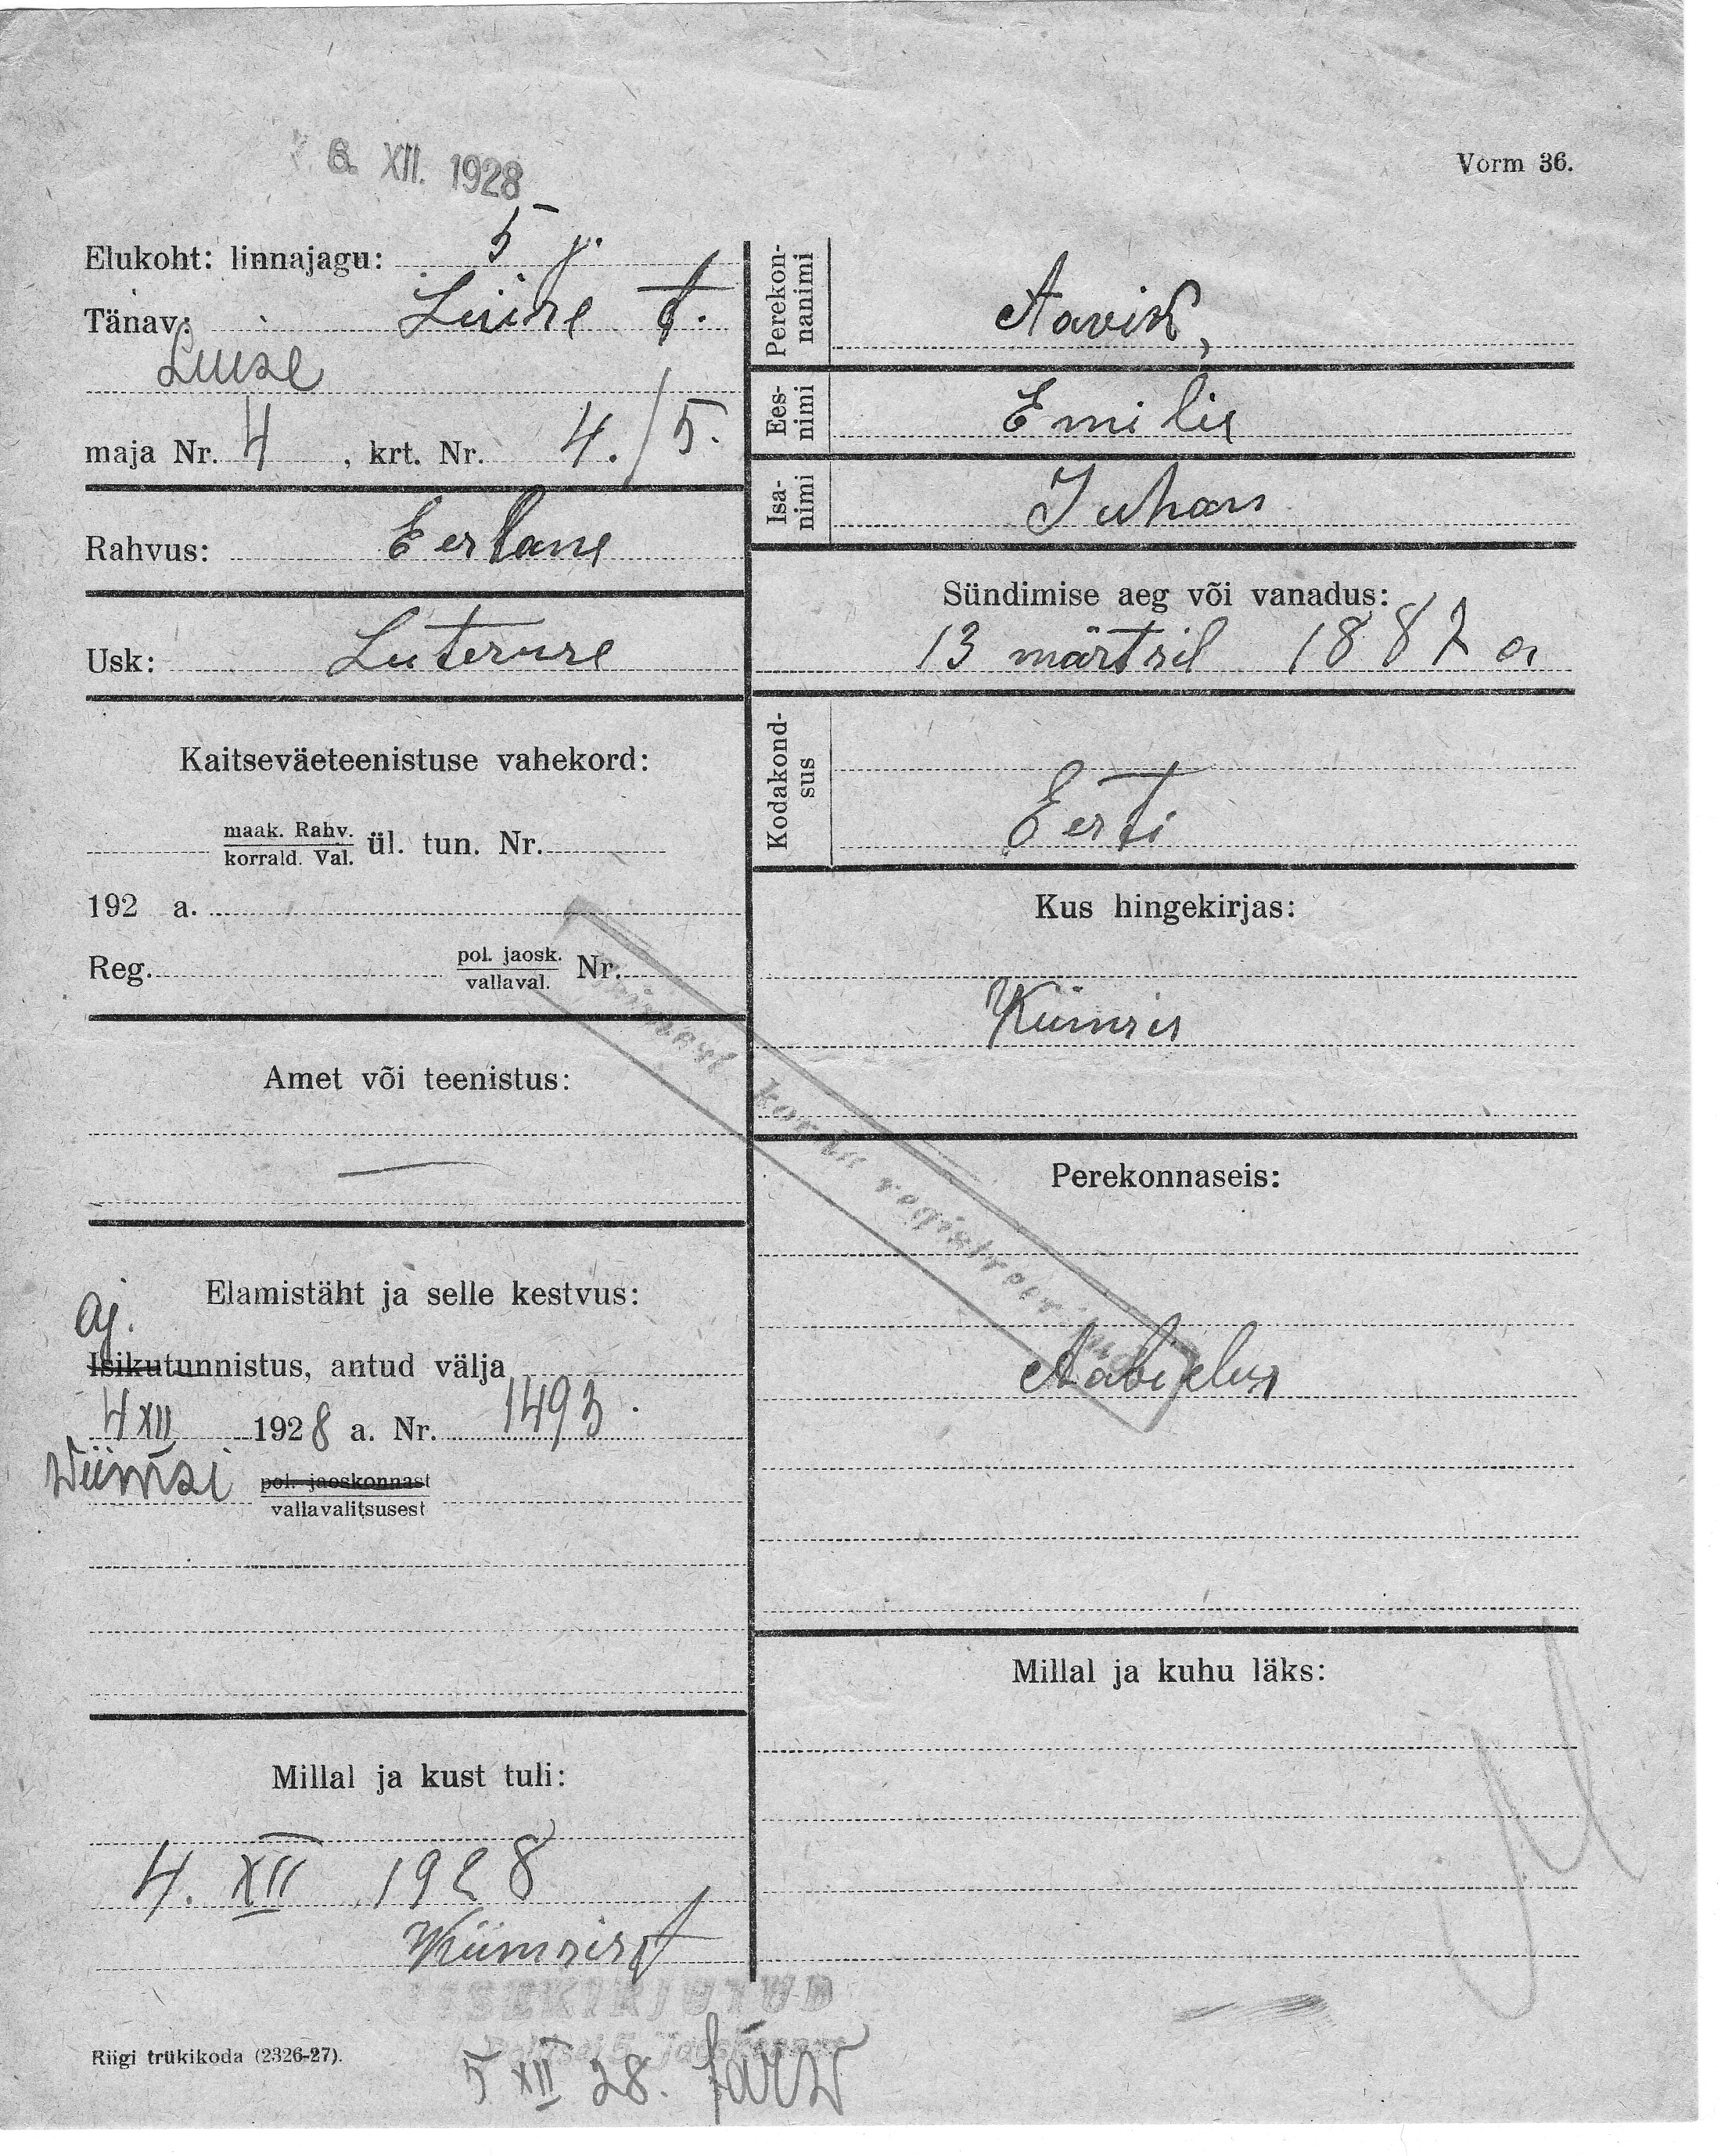 6. XII. 1928
Vorm 36.
Elukoht: linnajagu: 5 j.
Tänav: Luise t.
Luise
maja Nr. 4, krt. Nr. 4./5.
Rahvus: Eestlane
Usk: Luteruse
Kaitseväeteenistuse vahekord:
maak. Rahv.
korrald. Val. ül. tun. Nr.
192 a.
Reg. pol. jaosk.
vallaval. Nr.
Amet või teenistus:
—
Elamistäht ja selle kestvus:
Aj.
Isikutunnistus, antud välja
4 XII 1928 a. Nr. 1493.
Wiimsi pol. jaoskonnast
vallavalitsusest
Millal ja kust tuli:
4. XII 1928
Wiimsist
Perekon-
nanimi Aavik,
Ees-
nimi Emilie
Isa-
nimi Juhan
Sündimise aeg või vanadus:
13 märtsil 1887 a
Kodakond-
sus Eesti
Kus hingekirjas:
Wiimsis
Esimest korda registreeritud
Perekonnaseis:
Abielus
Millal ja kuhu läks:
SISSEKIRJUTUD
Riigi trükikoda (2326-27).
5 XII 28.